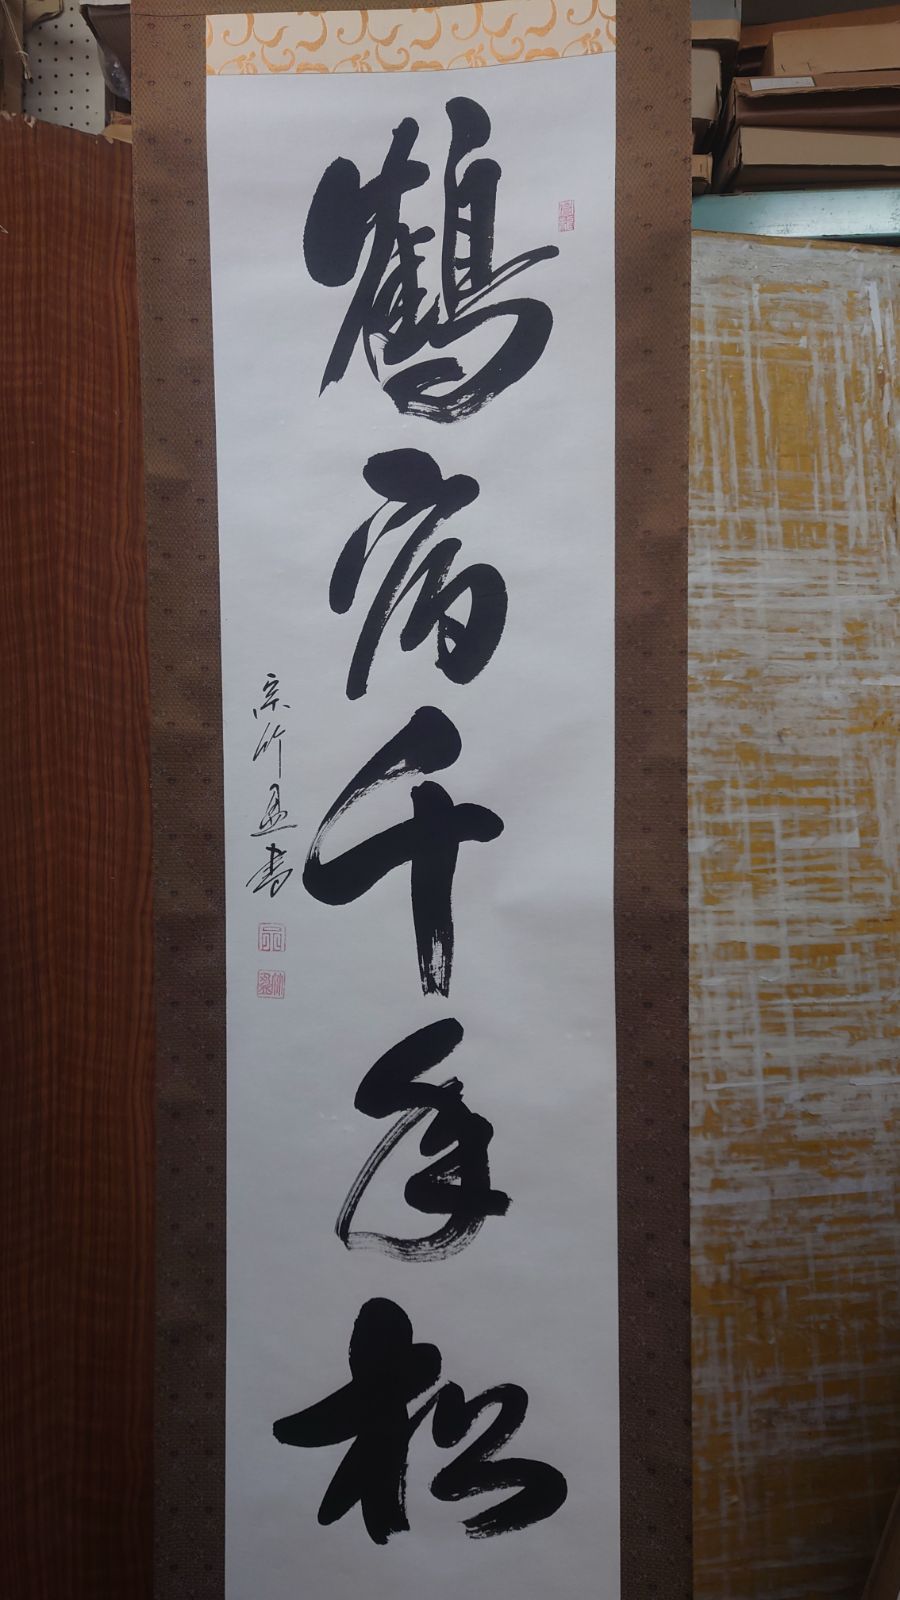 鶴宿千年松
宗竹逸書